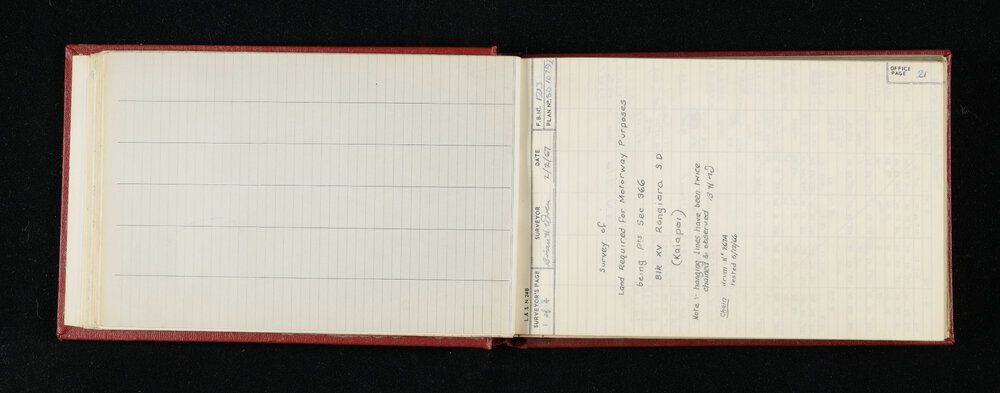 OFFICE PAGE 21
L. & S. N 248
SURVEYOR'S PAGE 1 of 4
SURVEYOR
DATE 2/2/67
F.B. Nº. 1213
PLAN Nº. SO 10792
Survey of
Land Required For Motorway Purposes
being Pts Sec 366
Blk XV Rangiora S.D
(Kaiapoi)
Note :- hanging lines have been twice
chained & observed
Chain drum Nº
tested 15/12/66